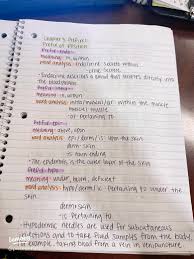 Chapter 3 Prefixes
Prefix: endo-
meaning: in, within
word analysis: Endocrine: secrete within
-crine: secrete
- Endocrine describes a gland that secretes directly into
the bloodstream
meaning: in, within
word analysis: intra/muscul/ar: within the muscle
muscul: muscle
-ar: pertaining to
Prefix: epi-
meaning: above, upon
word analysis: epi/derm/is: upon the skin
derm: skin
-is: noun ending
- The epidermis is the outer layer of the skin
meaning: under, below, deficient
word analysis: hypo/derm/ic: Pertaining to under the
skin.
derm: skin
-ic: pertaining to
- Hypodermic needles are used for subcutaneous
injections and to take fluid samples from the body
example, taking blood from a vein in venipuncture